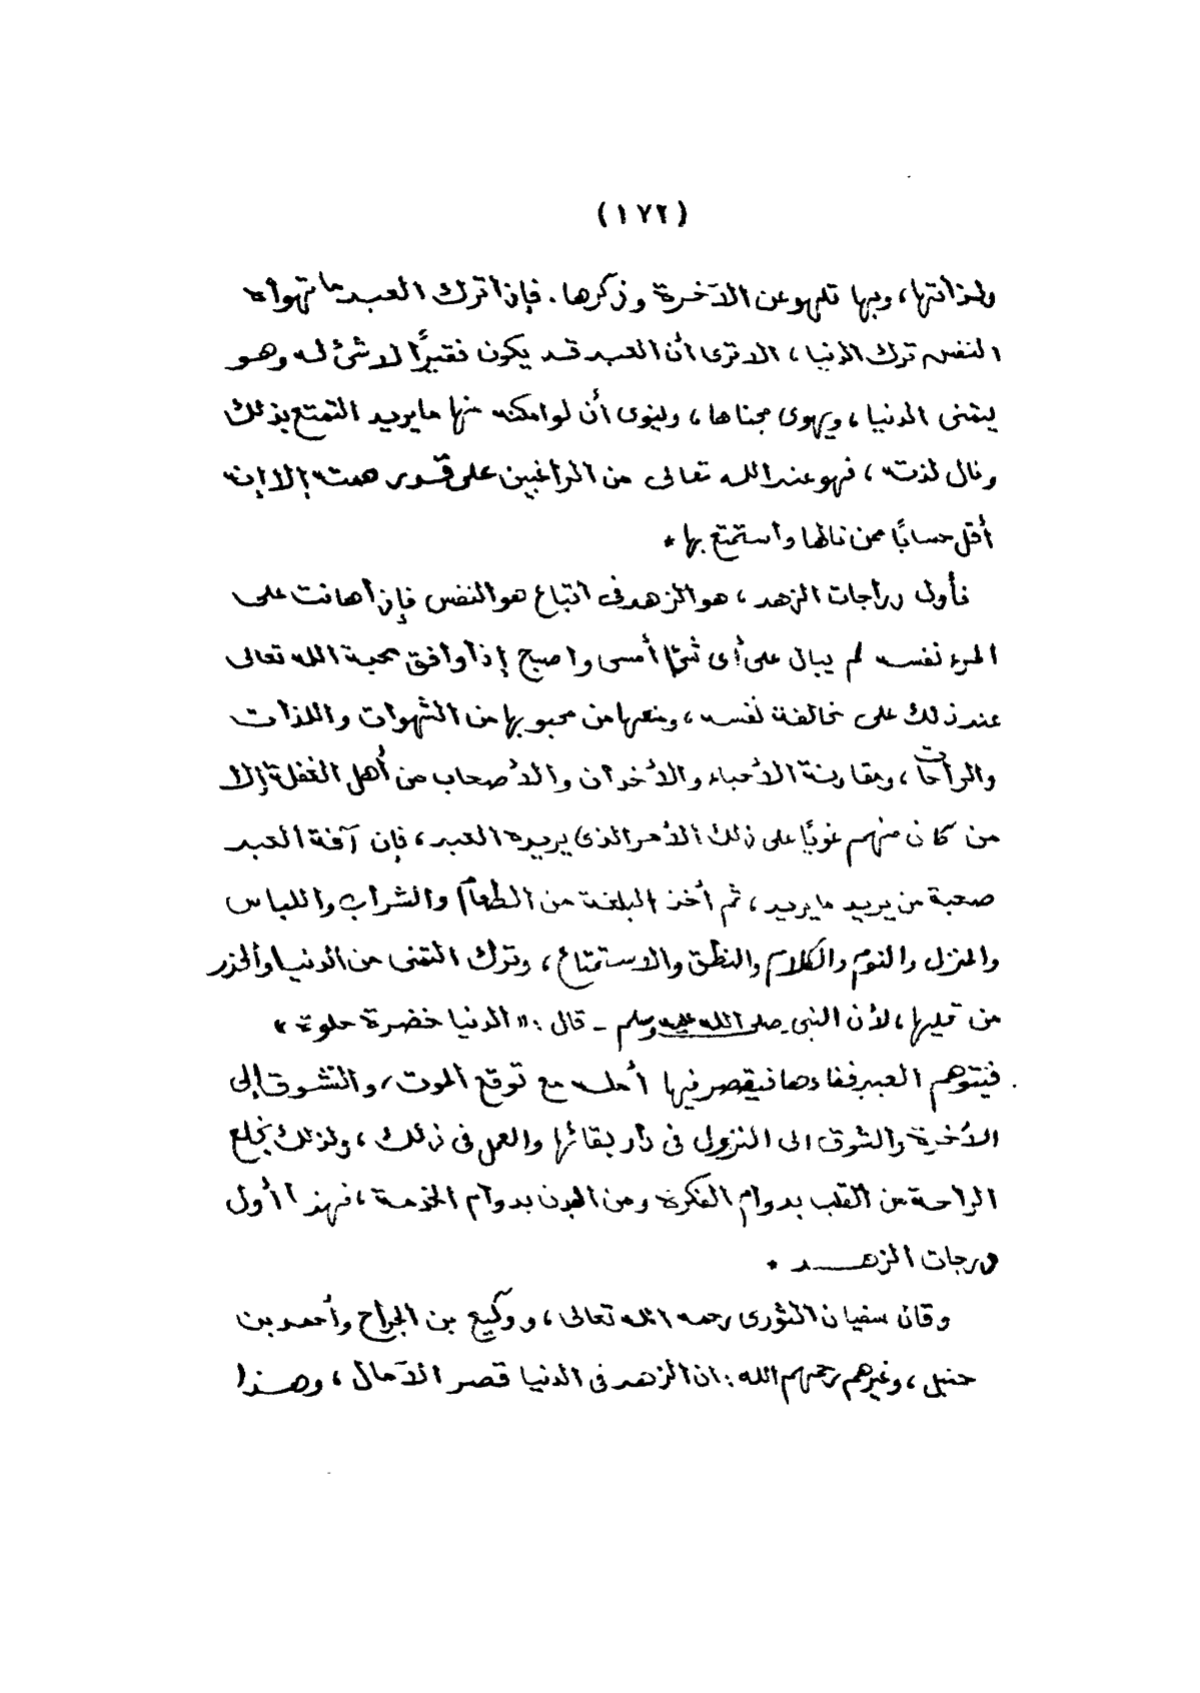 (١٧٢)
ولذاتها، وبها تلهو عن الآخرة وذكرها. فإذا ترك العبد ما تهواه
النفس ترك الدنيا، الا ترى أن العبد قد يكون فقيرًا لا شئ له وهو
يتمنى الدنيا، ويهوى مجناها، وينوى أن لو امكنه منها ما يريد التمتع بذلك
ونال لذته، فهو عند الله تعالى من الراغبين على قدر همته إلا إنه
أقل حسابًا ممن نالها واستمتع بها *
فأول دراجات الزهد، هو الزهد فى اتباع هو النفس فإذا هانت على
المرء نفسه لم يبال على أى شئ أمسى واصبح إذا وافق محبة الله تعالى
عند ذلك على مخالفة نفسه، ومنعها من محبوبها من الشهوات واللذات
والراحات، ومقارنة الأحباء والأخدان والأصحاب من أهل الغفلة إلا
من كان منهم عونًا على ذلك الأمر الذى يريده العبد، فإن آفة العبد
صحبة من يريد ما يريد، ثم أخذ البلغة من الطعام والشراب واللباس
والمنزل والنوم والكلام والنطق والاستمتاع، وترك التمنى من الدنيا والحذر
من تمليها، لأن النبى صلى الله عليه وسلم - قال: «الدنيا خضرة حلوة»
فيتوهم العبد فناءها فيقصر فيها أمله مع توقع الموت، والتشوق إلى
الأخرة والشوق الى النزول فى دار بقائها والعمل فى ذلك، ولذلك بخلع
الراحة من القلب بدوام الفكرة ومن البدن بدوام الخدمة، فهذا أول
درجات الزهد *
وقال سفيان الثورى رحمه الله تعالى، ووكيع بن الجراح وأحمد بن
حنبل، وغيرهم رحمهم الله: ان الزهد فى الدنيا قصر الآمال، وهذا